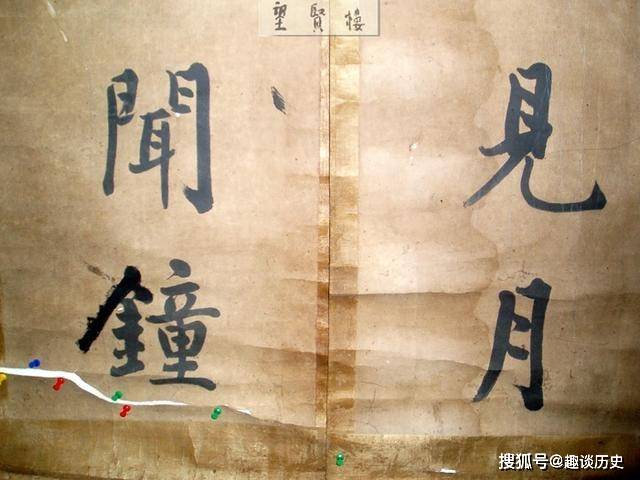 望賢樓
見月
聞鐘
搜狐号@趣谈历史